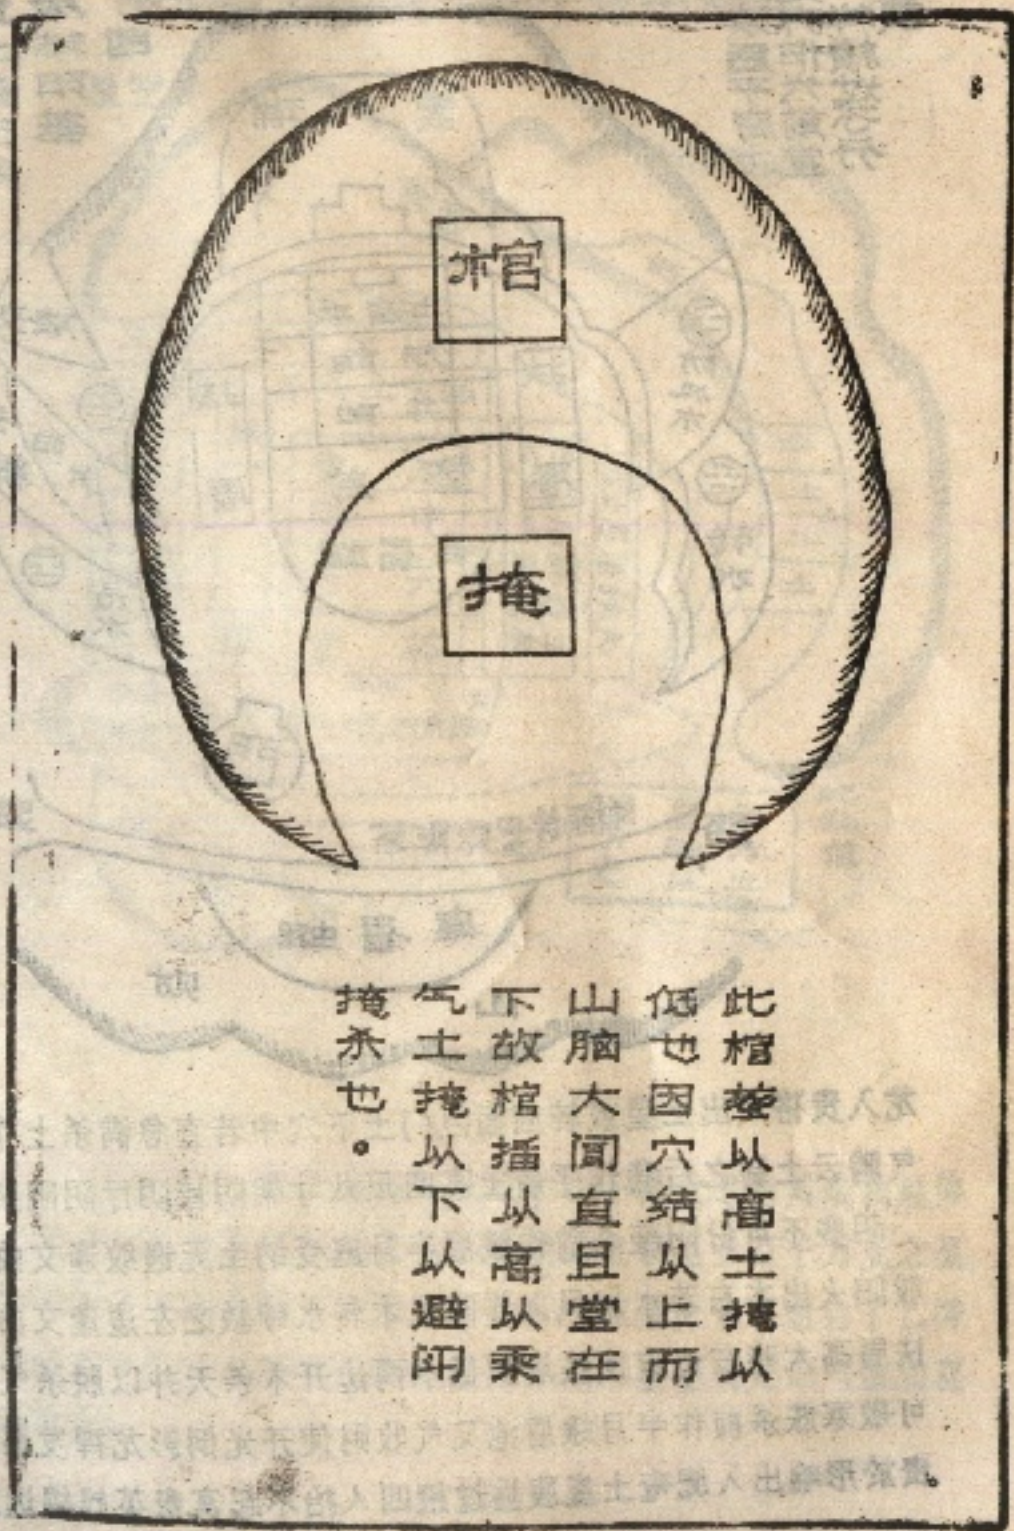 棺
掩
此棺塟以高土掩以
低也因穴结从上而
山脑大直且堂在
下故棺插以高以乘
气土掩以下以避
掩杀也。